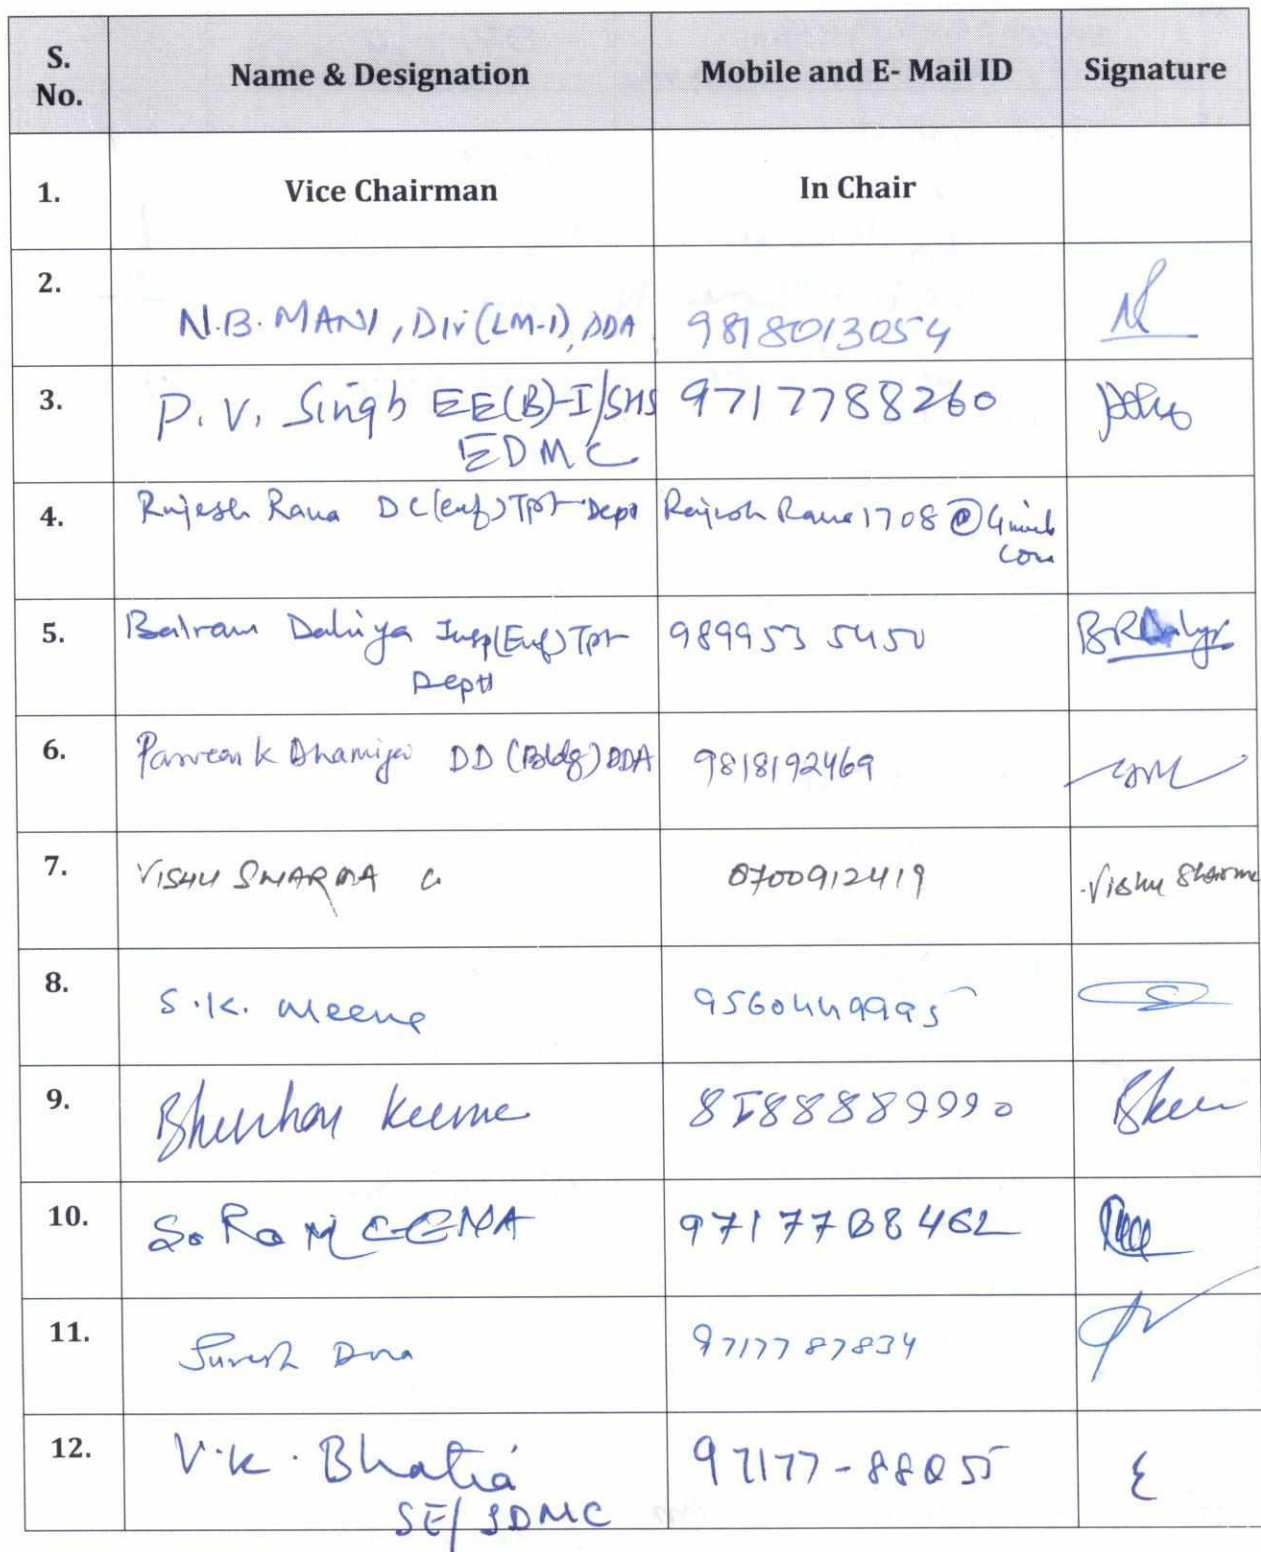 S. No. Name & Designation Mobile and E- Mail ID Signature
1. Vice Chairman In Chair
2. N.B. MANI, Dir (LM-I), DDA 9818013054
3. P. V. Singh EE(B)-I/SHS 9717788260
EDMC
4. Rajesh Rana DC(enf) Tpt Dept Rajesh Rana1708@Gmail
com
5. Balram Dahiya Insp(Enf) Tpt 989953 5450 BRDahiya
Deptt
6. Parveen K Dhamija DD (Bldg) DDA 9818192469
7. VISHU SHARMA 8700912419 Vishu Sharma
8. S.K. Meena 9560449995
9. Bhushan Kumar 8588889990
10. S. Ra MEENA 9717788462
11. Suresh Dua 9717787834
12. V.K. Bhatia 97177-88055
SE/SDMC